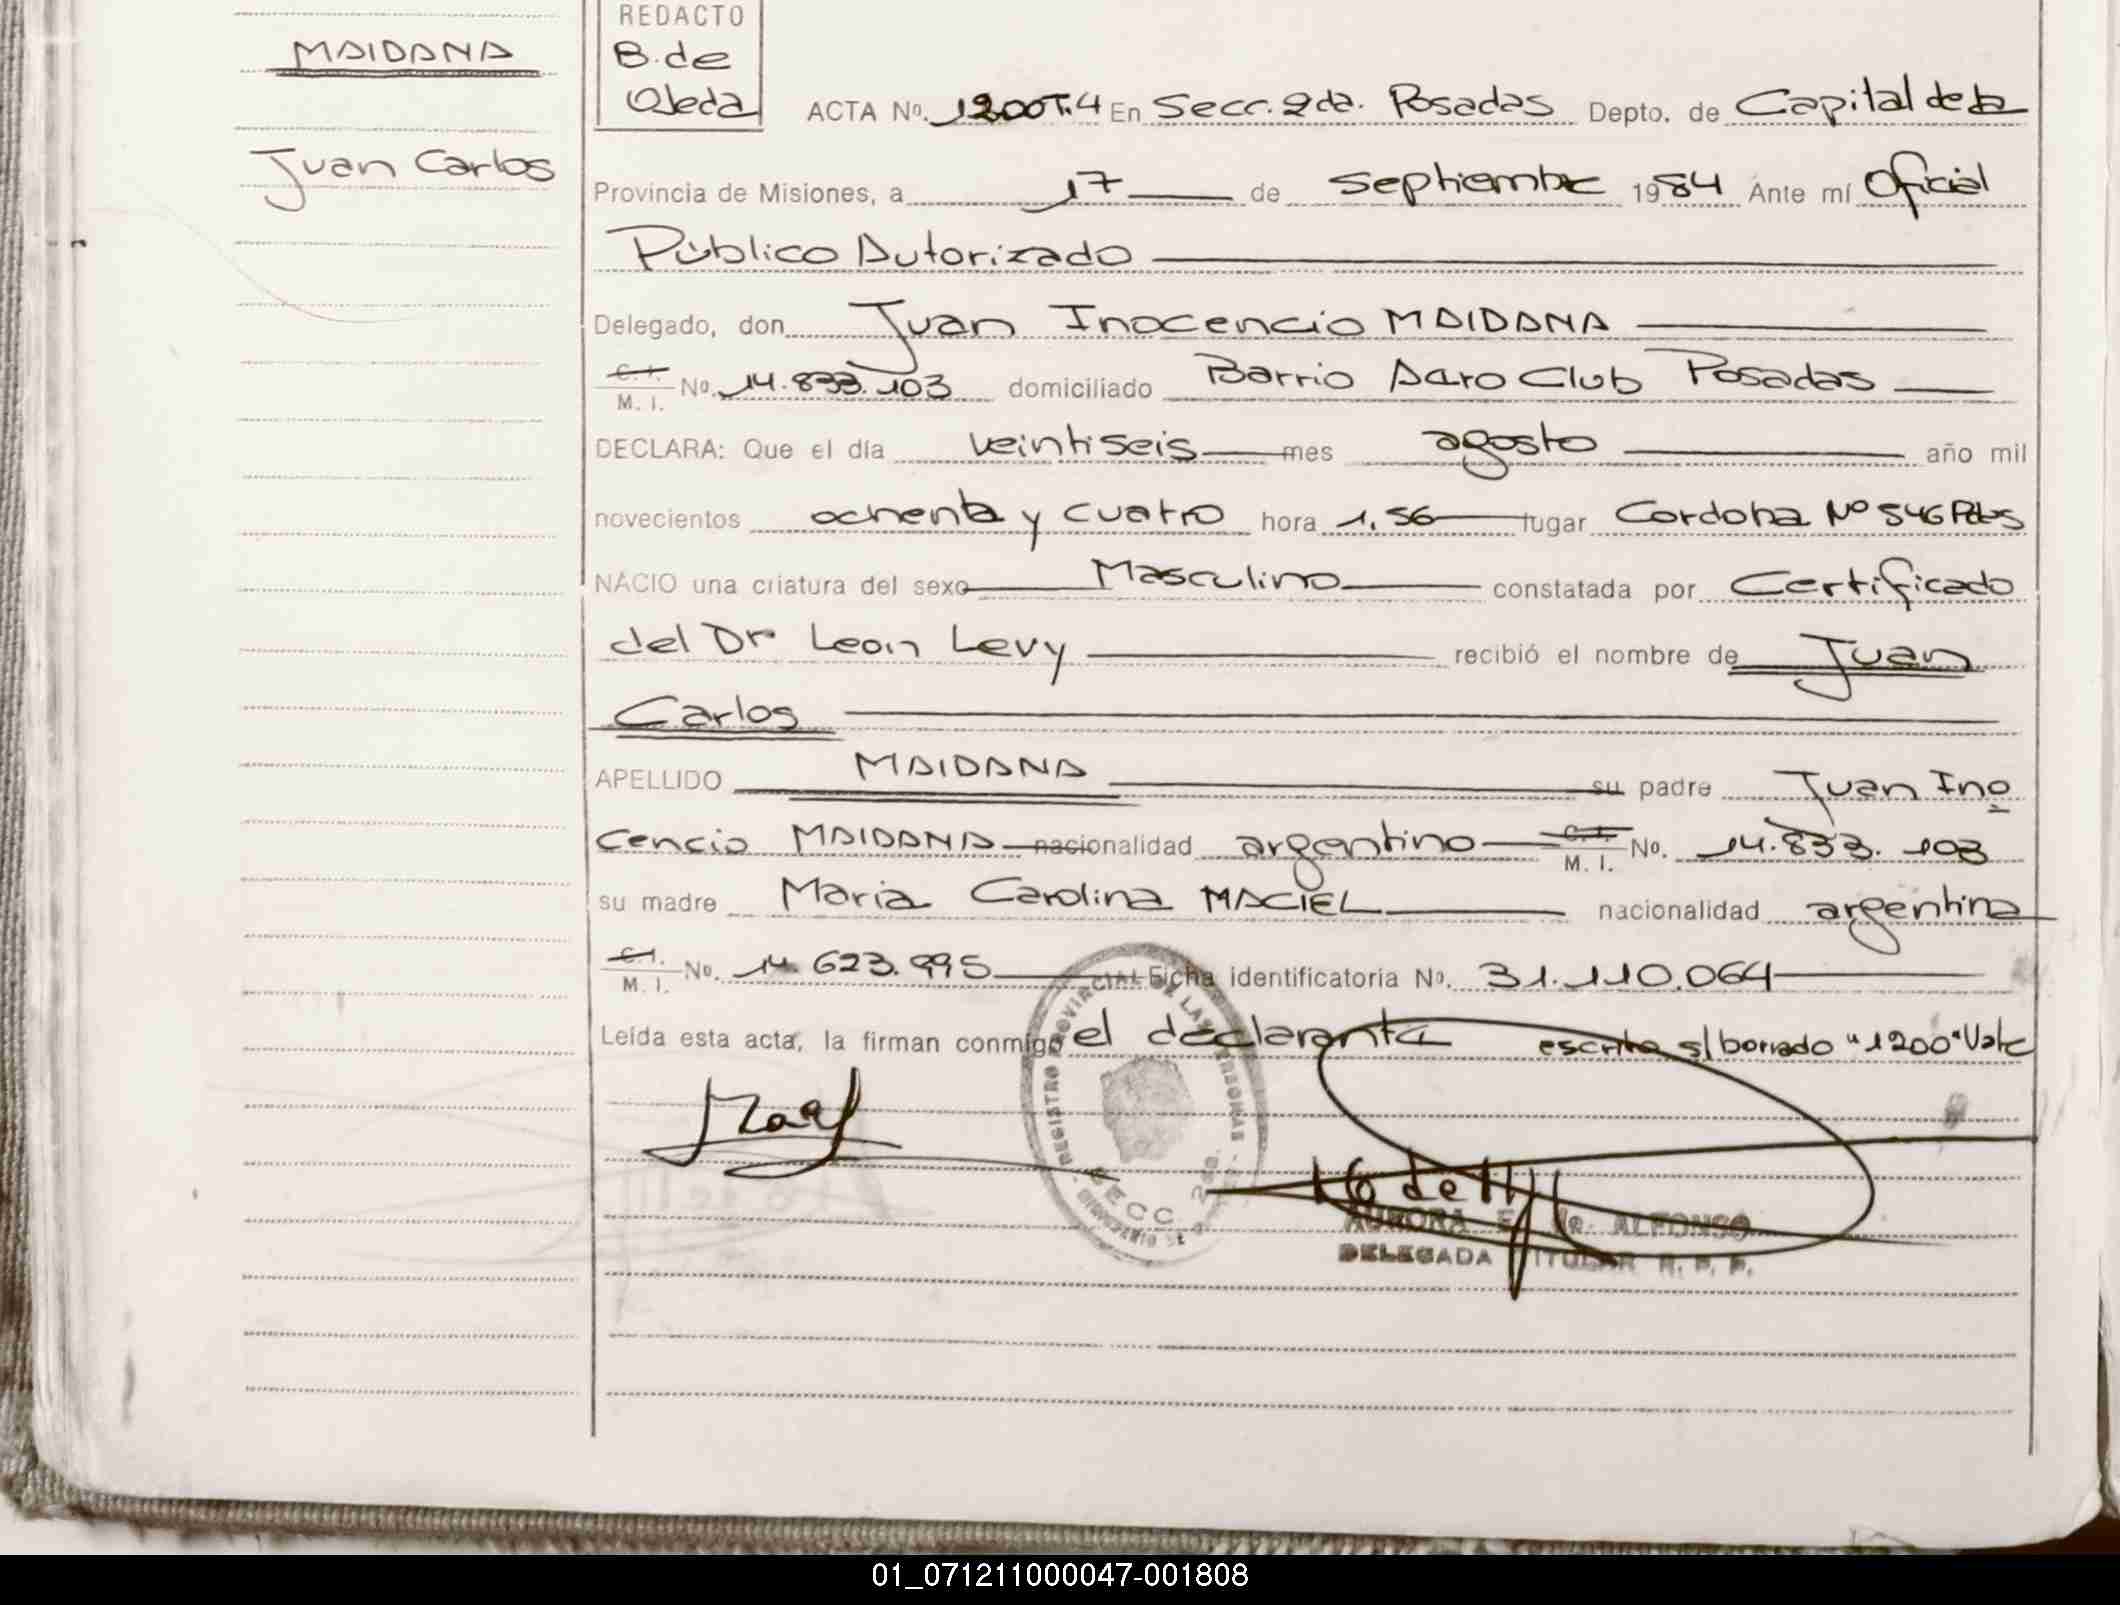 REDACTO
MAIDANA
B. de
Ojeda
ACTA Nº. 1200T.4 En Secc. 2da. Posadas Depto. de Capital de la
Juan Carlos
Provincia de Misiones, a 17 de septiembre 1984 Ante mí Oficial
Público Autorizado
Delegado, don Juan Inocencio MAIDANA
C. I.
M. I. Nº. 14.833.103 domiciliado Barrio Aero Club Posadas
DECLARA: Que el día veintiseis mes agosto año mil
novecientos ochenta y cuatro hora 1,56 lugar Cordoba Nº 546 Pdas
NACIO una criatura del sexo Masculino constatada por Certificado
del Dr Leon Levy recibió el nombre de Juan
Carlos
APELLIDO MAIDANA su padre Juan Ino
cencio MAIDANA nacionalidad argentino C. I. M. I. No. 14.833.103
su madre Maria Carolina MACIEL nacionalidad argentina
C. I.
M. I. No. 14.623.995 Ficha identificatoria Nº. 31.110.064
Leída esta acta, la firman conmigo el declarante escrito s/borrado "1200" Vale
REGISTRO PROVINCIAL DE LAS PERSONAS
SECC. 2da.
AURORA E. de ALFONSO
DELEGADA TITULAR R. P. P.
01_071211000047-001808